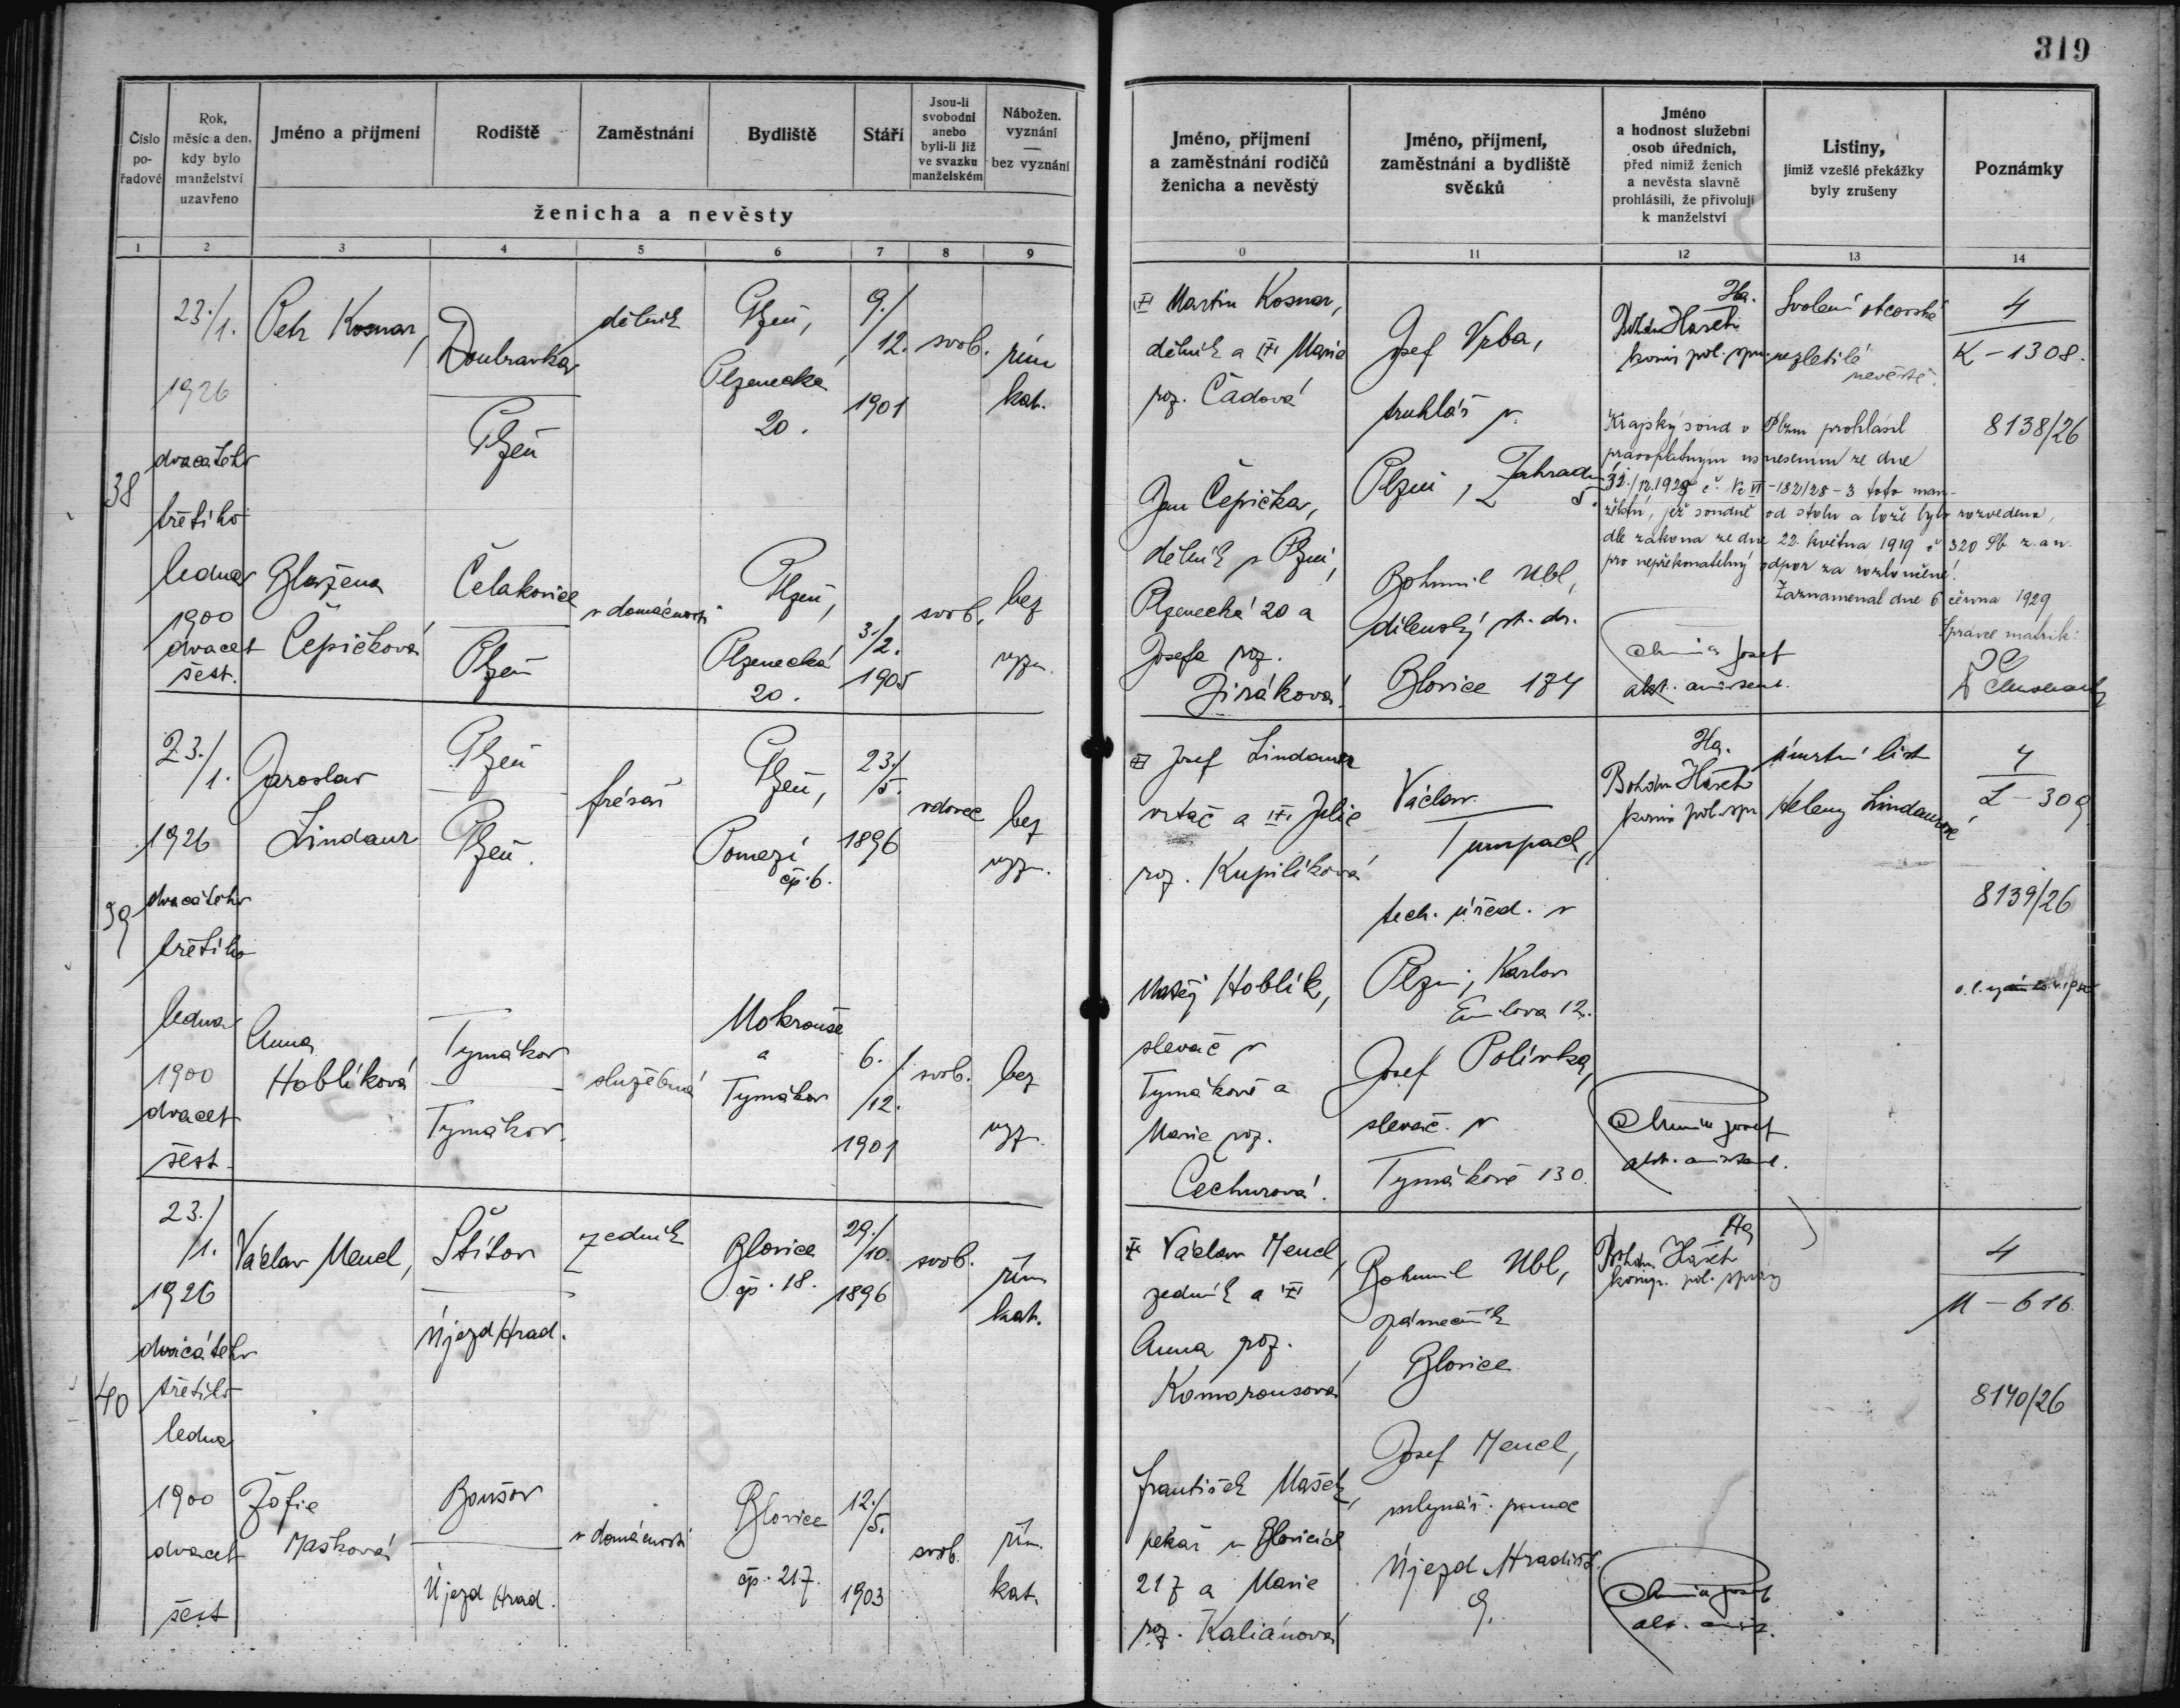 319
Číslo po-řadové
Rok, měsíc a den, kdy bylo manželství uzavřeno
Jméno a příjmení
Rodiště
Zaměstnání
Bydliště
Stáří
Jsou-li svobodni anebo byli-li již ve svazku manželském
Nábožen. vyznání — bez vyznání
ženicha a nevěsty
Jméno, příjmení a zaměstnání rodičů ženicha a nevěsty
Jméno, příjmení, zaměstnání a bydliště svědků
Jméno a hodnost služební osob úředních, před nimiž ženich a nevěsta slavně prohlásili, že přivolují k manželství
Listiny, jimiž vzešlé překážky byly zrušeny
Poznámky
1 2 3 4 5 6 7 8 9 0 11 12 13 14
38
23./1.
1926
dvacátého
třetího
ledna
1900
dvacet
šest.
Petr Kosnar,
Doubravka
Plzeň
dělník
Plzeň,
Plzenecká
20.
9./12.
1901
svob.
řím
kat.
Blažena
Čepičková
Čelakovice
Plzeň
v domácnosti
Plzeň,
Plzenecká
20.
3./2.
1905
svob.
bez
vyzn.
Martin Kosnar,
dělník a Marie
roz. Čadová
Jan Čepička,
dělník v Plzni,
Plzenecká 20 a
Josefa roz.
Jiráková.
Josef Vrba,
truhlář v
Plzni, Zahradní
5.
Bohumil Ubl,
dílenský st. dr.
Blovice 174
Ha.
Bohdan Hašek
komis pol. spr.
Svolení otcovské
nezletilé
nevěstě.
4
K – 1308.
8138/26
Krajský soud v Plzni prohlásil
pravoplatným usnesením ze dne
31./12.1928 č. Nc VI – 182/28 – 3 toto man-
želství, jež soudně od stolu a lože bylo rozvedeno,
dle zákona ze dne 22. května 1919 č 320 Sb. z. a n.
pro nepřekonatelný odpor za rozloučené.
Zaznamenal dne 6 června 1929
Správce matrik:
Josef
akt. assistent.
39
23./1.
1926
dvacátého
třetího
ledna
1900
dvacet
šest.
Jaroslav
Lindaur
Plzeň
Plzeň.
frésař
Plzeň,
Pomezí
čp. 6.
23./5.
1896
vdovec
bez
vyzn.
Anna
Hoblíková
Tymákov
Tymákov.
služebná
Mokrouše
a
Tymákov
6./12.
1901
svob.
bez
vyzn.
Josef Lindaur
vrtač a Julie
roz. Kupilíková
Matěj Hoblík,
slevač v
Tymákově a
Marie roz.
Čechurová.
Václav
Tumpach,
tech. úřed. v
Plzni, Karlov
Emilova 12.
Josef Polívka,
slevač v
Tymákově 130.
Ha.
Bohdan Hašek
komis pol. spr
úmrtní list
Heleny Lindaurové
4
L – 309
8139/26
Josef
akt. assistent.
40
23./1.
1926
dvacátého
třetího
ledna
1900
dvacet
šest
Václav Mencl,
Štítov
Újezd Hrad.
zedník
Blovice
čp. 18.
29./10.
1896
svob.
řím
kat.
Žofie
Mašková
Boušov
Újezd Hrad.
v domácnosti
Blovice
čp. 217.
12./5.
1903
svob.
řím.
kat.
Václav Mencl,
zedník a
Anna roz.
Komorousová
František Mašek,
pekař v Blovicích
217 a Marie
roz. Kaliánová
Bohumil Ubl,
zámečník
Blovice
Josef Mencl,
mlynář. pomoc
Újezd Hradiště
9.
Ha
Bohdan Hašek
komis. pol. správy
4
M – 616.
8140/26
Josef
akt. assist.